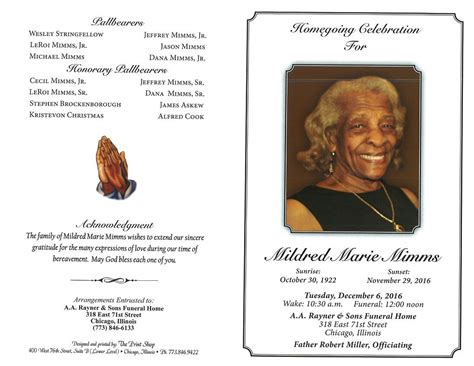 Pallbearers
Wesley Stringfellow Jeffrey Mimms, Jr.
LeRoi Mimms, Jr. Jason Mimms
Michael Mimms Dana Mimms, Jr.
Honorary Pallbearers
Cecil Mimms, Jr. Jeffrey Mimms, Sr.
LeRoi Mimms, Sr. Dana Mimms, Sr.
Stephen Brockenborough James Askew
Kristevon Christmas Alfred Cook
Acknowledgment
The family of Mildred Marie Mimms wishes to extend our sincere
gratitude for the many expressions of love during our time of
bereavement. May God bless each one of you.
Arrangements Entrusted to:
A.A. Rayner & Sons Funeral Home
318 East 71st Street
Chicago, Illinois
(773) 846-6133
Designed and printed by: The Print Shop
400 West 76th Street, Suite B (Lower Level) • Chicago, Illinois • Ph. 773.846.9422
Homegoing Celebration
For
Mildred Marie Mimms
Sunrise: Sunset:
October 30, 1922 November 29, 2016
Tuesday, December 6, 2016
Wake: 10:30 a.m. Funeral: 12:00 noon
A.A. Rayner & Sons Funeral Home
318 East 71st Street
Chicago, Illinois
Father Robert Miller, Officiating